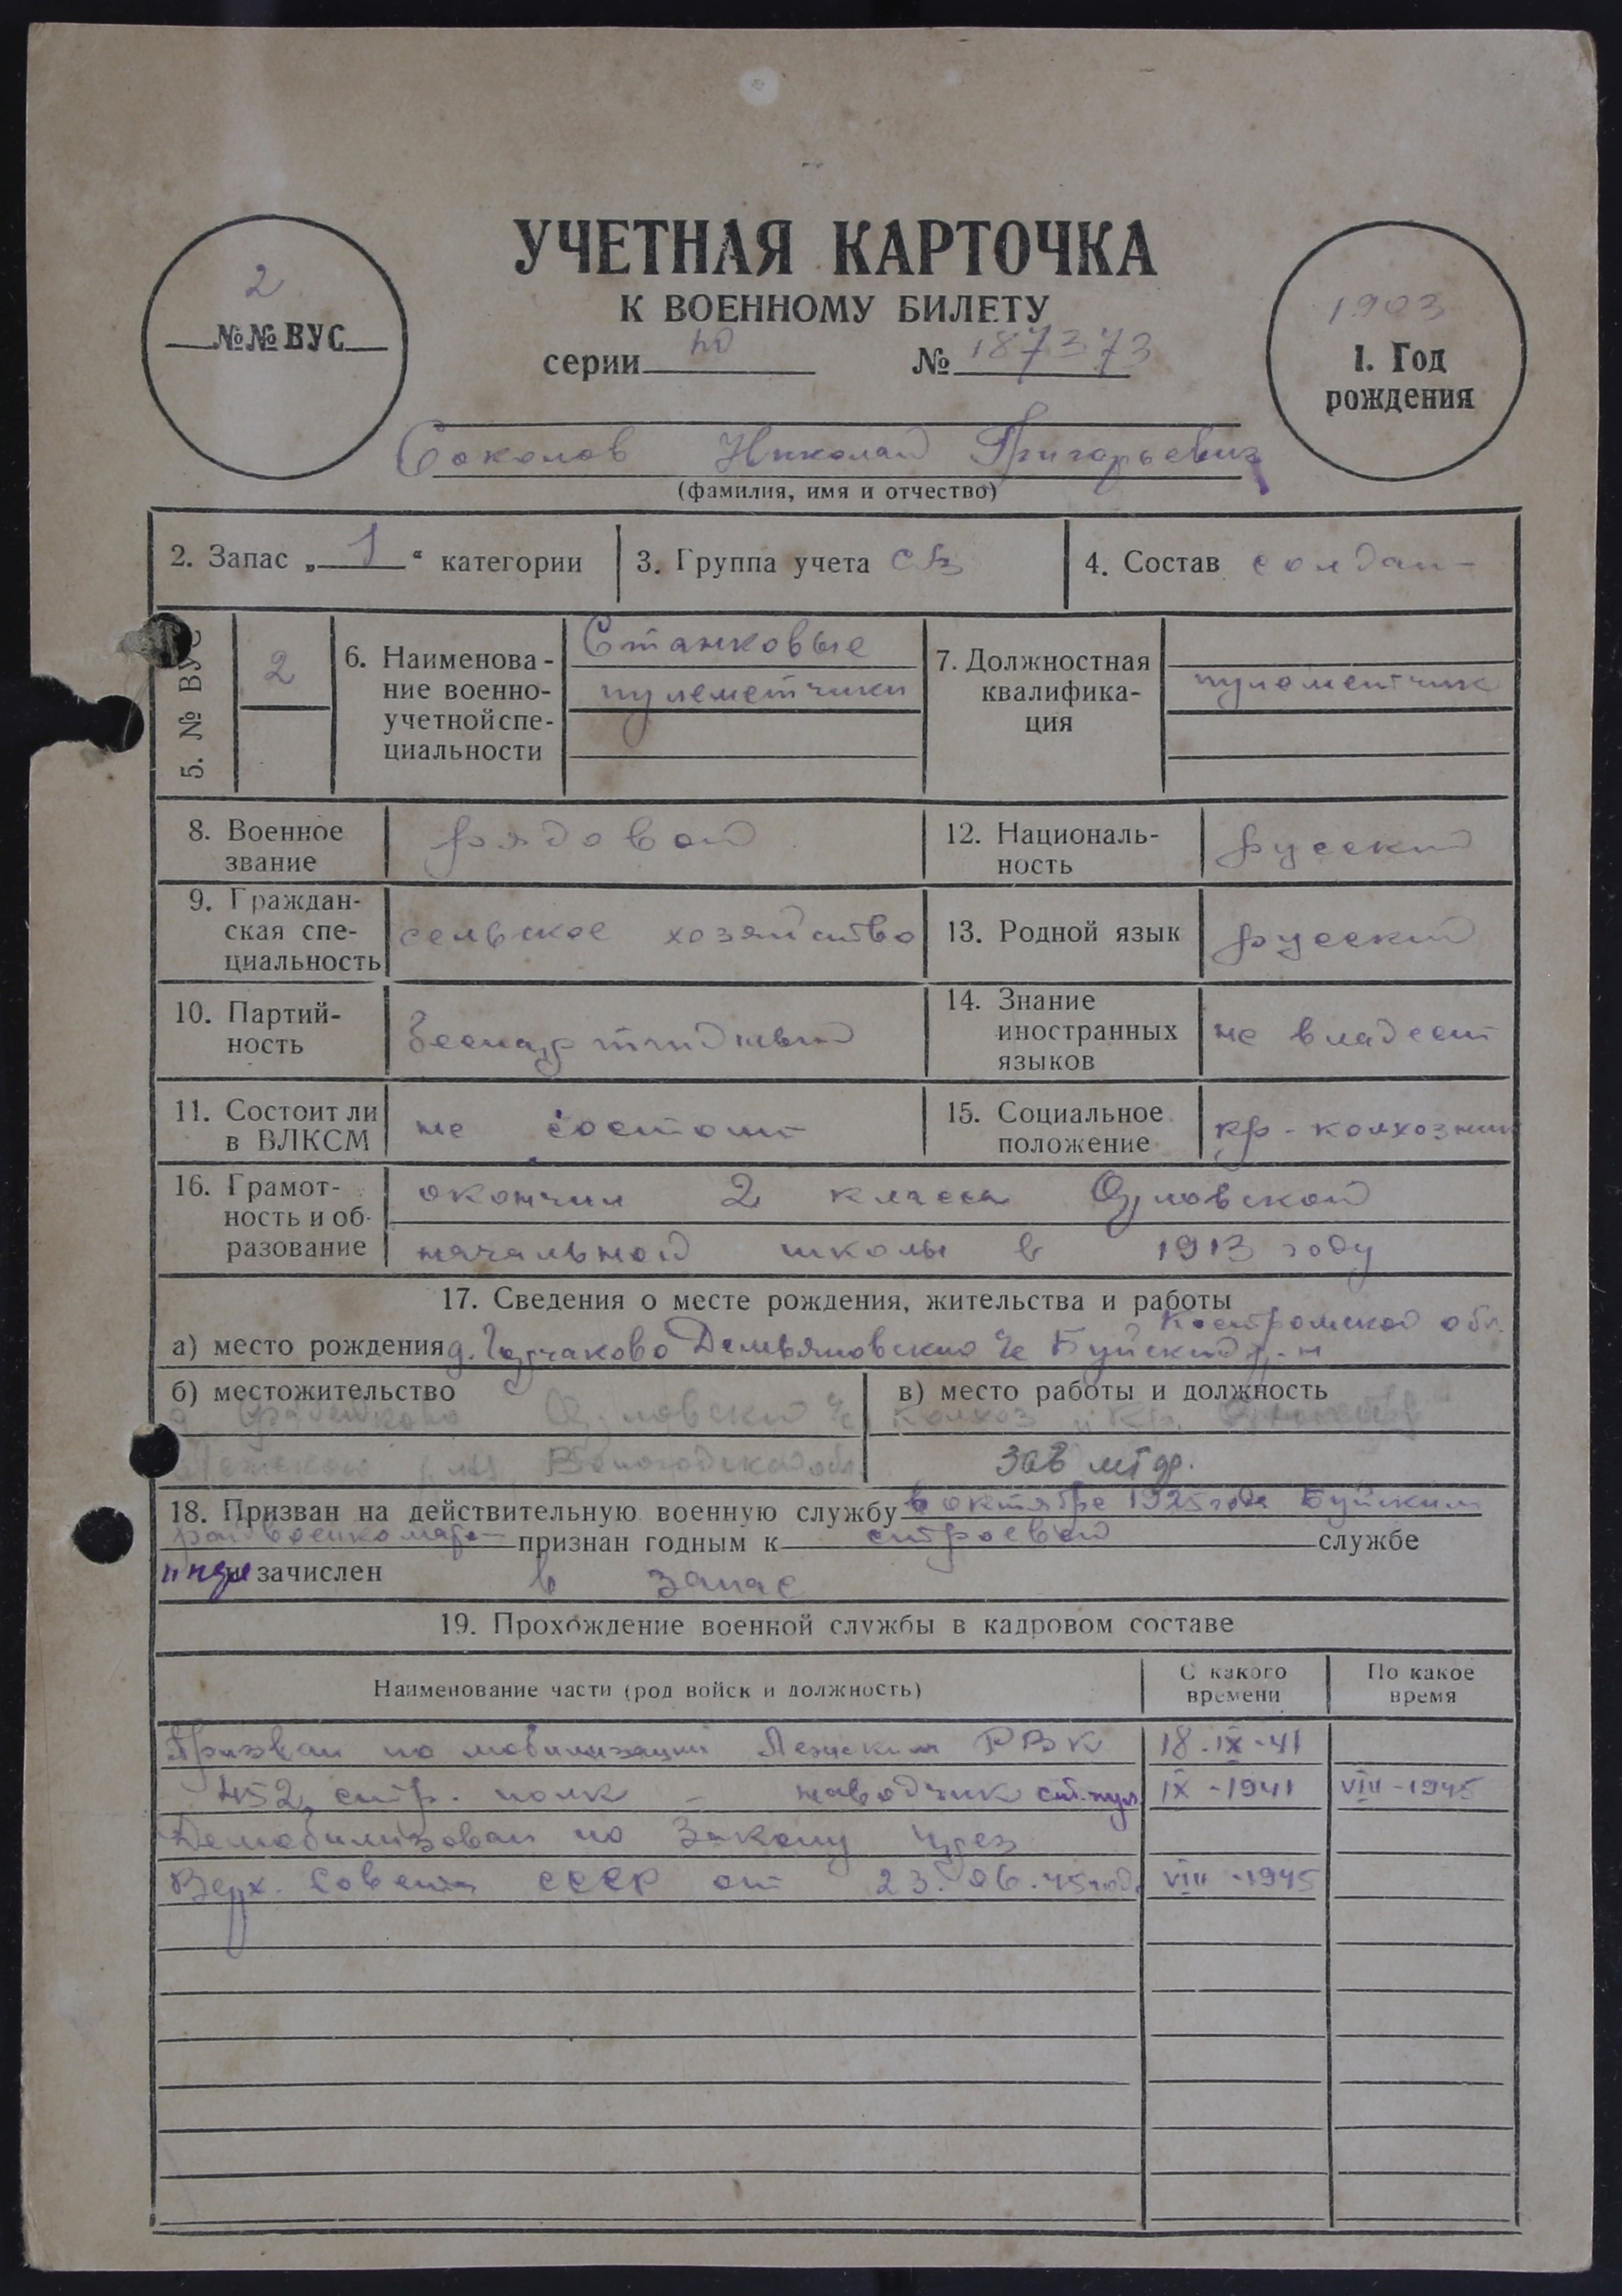 УЧЕТНАЯ КАРТОЧКА
К ВОЕННОМУ БИЛЕТУ
2
№№ ВУС
серии № 187373
1903
1. Год
рождения
Соколов Николай Григорьевич
(фамилия, имя и отчество)
2. Запас „ 1 “ категории
3. Группа учета СВ
4. Состав солдат
5. № ВУС
2
6. Наименова-
ние военно-
учетной спе-
циальности
Станковые
пулеметчики
7. Должностная
квалифика-
ция
пулеметчик
8. Военное
звание
рядовой
12. Националь-
ность
русский
9. Граждан-
ская спе-
циальность
сельское хозяйство
13. Родной язык
русский
10. Партий-
ность
беспартийный
14. Знание
иностранных
языков
не владеет
11. Состоит ли
в ВЛКСМ
не состоит
15. Социальное
положение
кр-колхозник
16. Грамот-
ность и об-
разование
окончил 2 класса Орловской
начальной школы в 1913 году
17. Сведения о месте рождения, жительства и работы
Костромской обл.
а) место рождения д. Демьяновского с/с Буйский р-н
б) местожительство
Вологодской обл
в) место работы и должность
колхоз
зав мтф.
18. Призван на действительную военную службу в октябре 1925 года Буйским
райвоенкомат признан годным к строевой службе
и зачислен в запас
19. Прохождение военной службы в кадровом составе
Наименование части (род войск и должность)
С какого
времени
По какое
время
Призван по мобилизации Лежским РВК 18-IX-41
452 стр. полк - наводчик ст. пул. IX-1941 VIII-1945
Демобилизован по Закону
Верх. Совета СССР от 23.06.45 год. VIII-1945